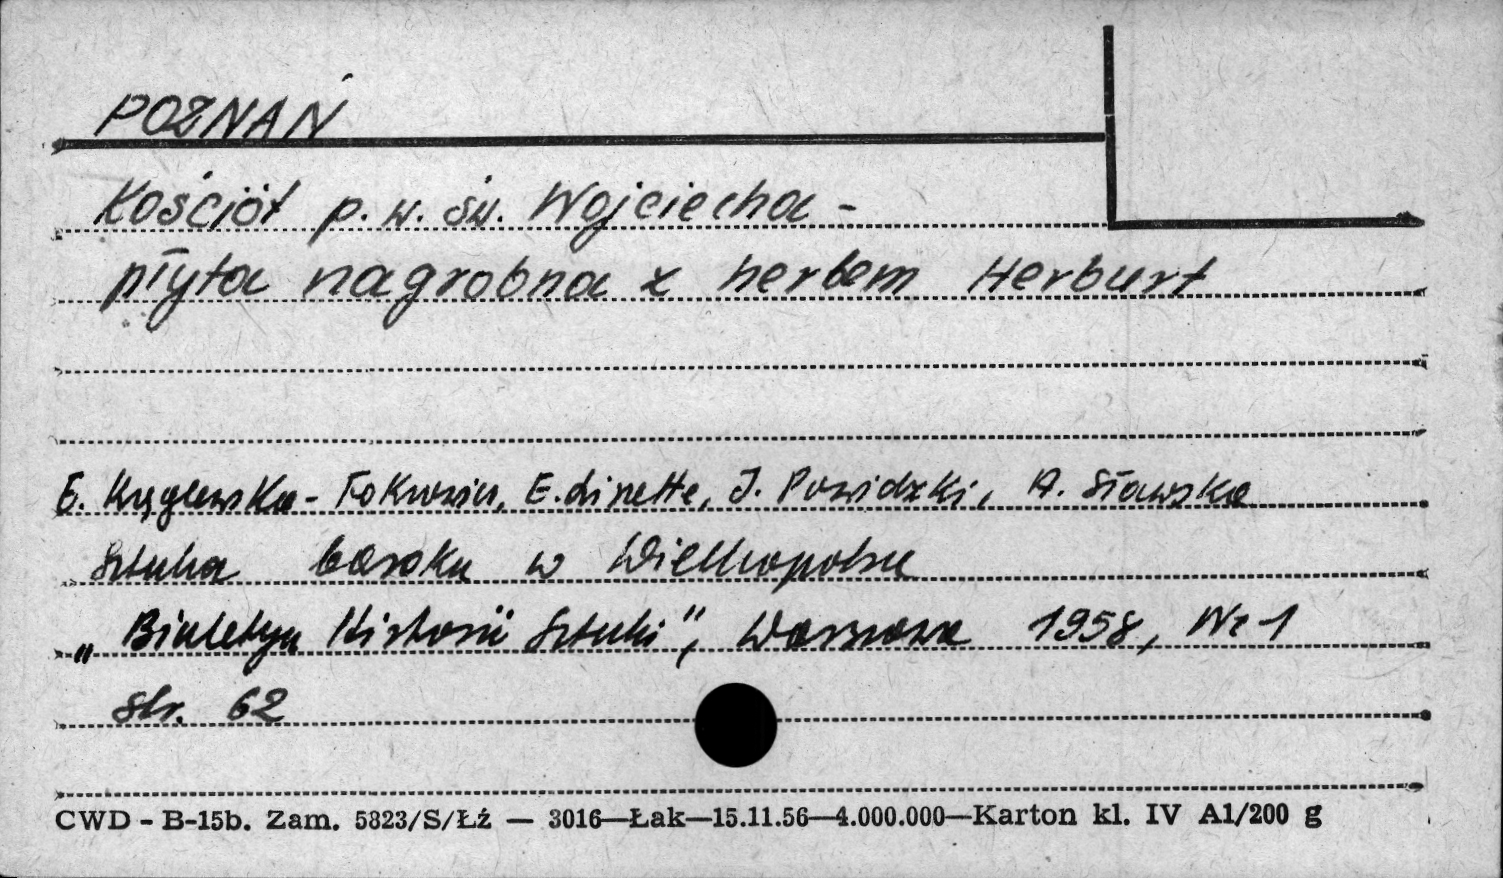 POZNAŃ
Kościół p.w. św. Wojciecha -
płyta nagrobna z herbem Herburt
E. Kręglewska-Fokowicz, E. Linette, J. Powidzki, A. Sławska
Sztuka baroku w Wielkopolsce
„Biuletyn Historii Sztuki”, Warszawa 1958, Nr 1
str. 62
CWD - B-15b. Zam. 5823/S/Łź — 3016—Łak—15.11.56—4.000.000—Karton kl. IV A1/200 g